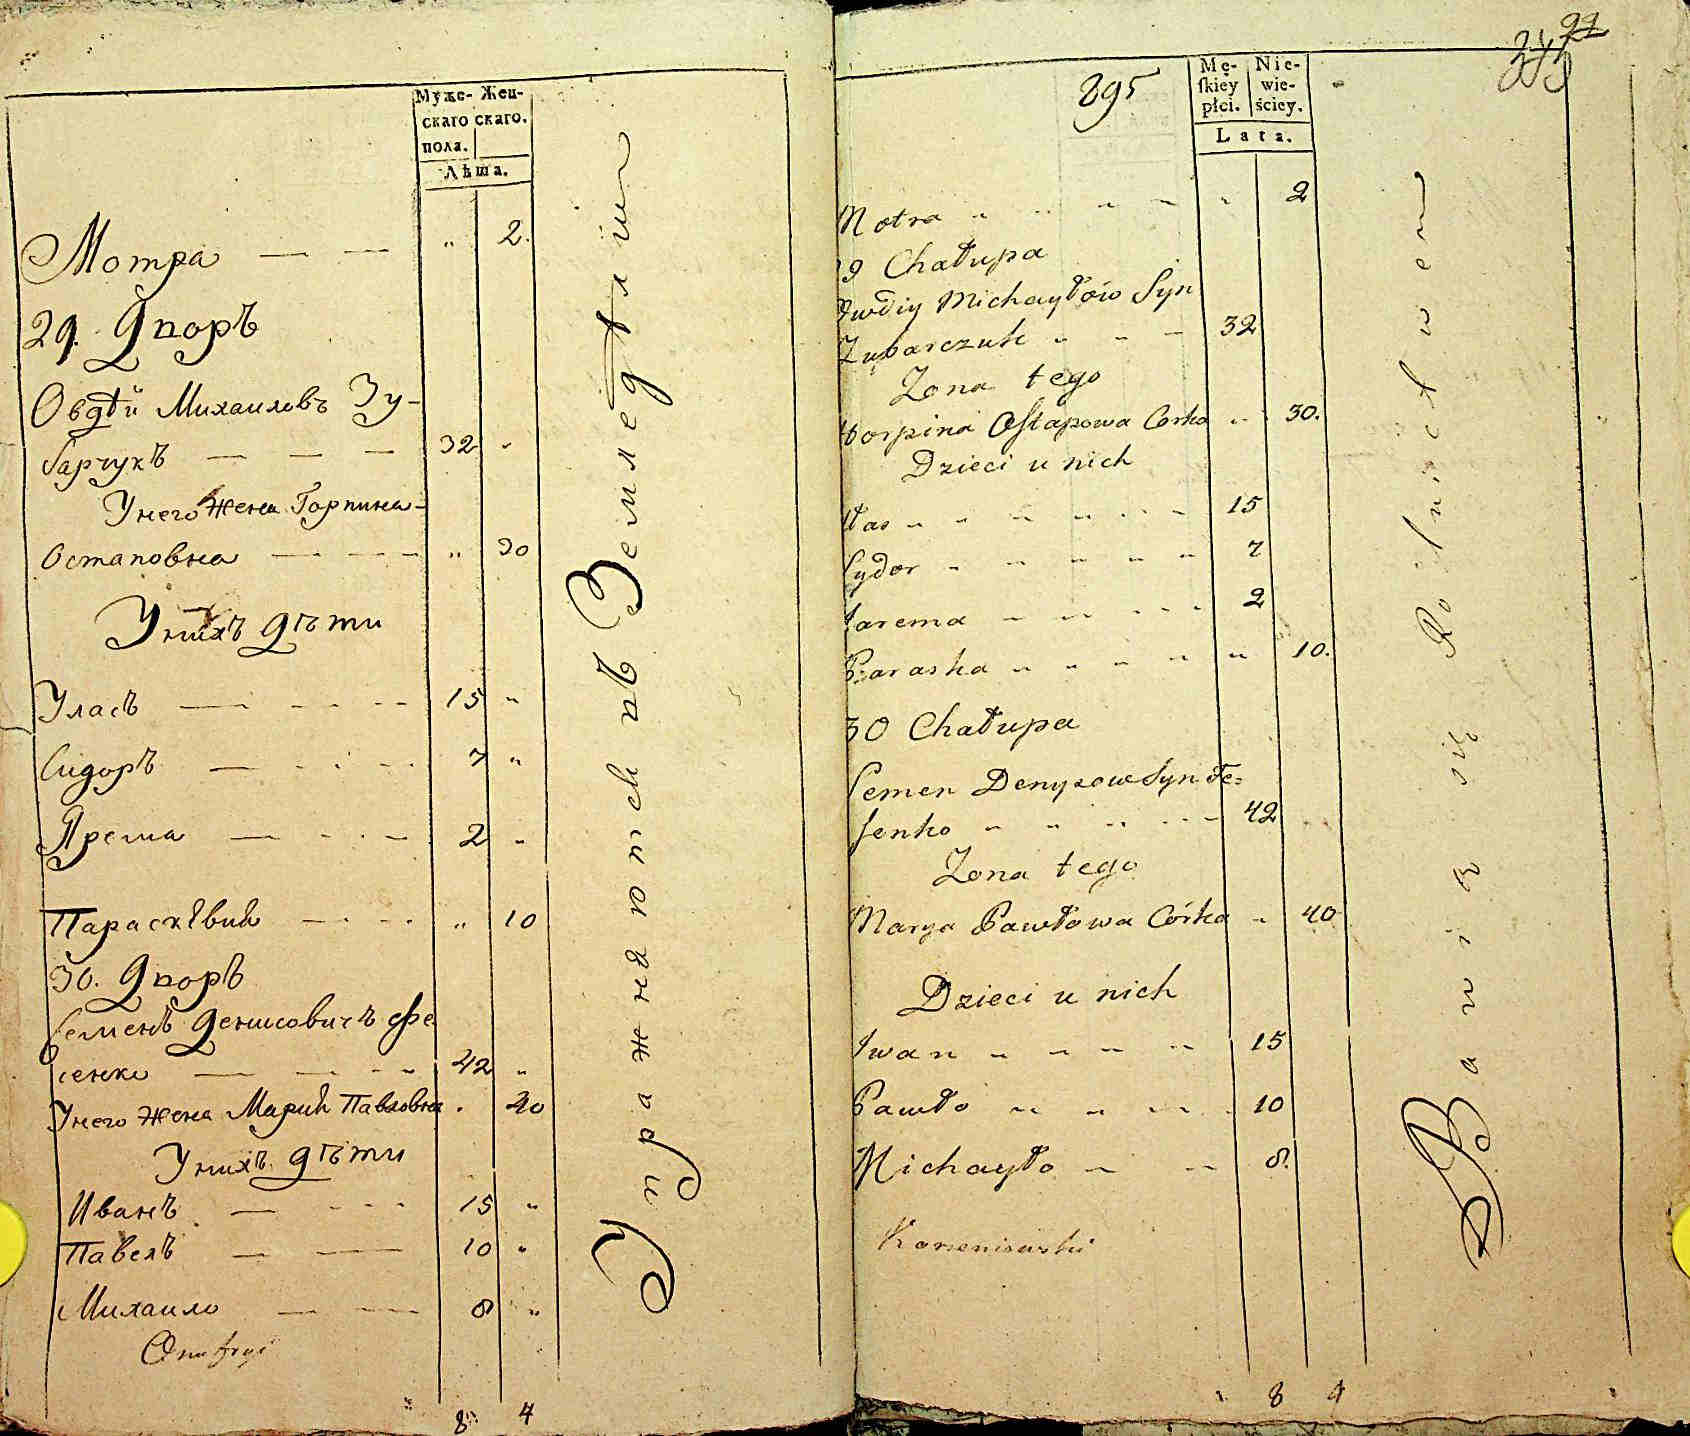 Мужс- Жен-
скаго скаго.
пола.
Лѣта.
Мотра — — " 2.
29. Дворъ
Овдѣй Михаиловъ Зу-
барчукъ — — — 32 "
У него жена Горпина
Остаповна — — — " 30
У нихъ дѣти
Уласъ — — — 15 "
Сидоръ — — — 7 "
Ярема — — — 2 "
Параскѣвия — — — " 10
30. Дворъ
Семенъ Денисовичъ Фе
сенко — — — 42 "
У него жена Мария Павловна . 40
У нихъ дѣти
Иванъ — — — 15 "
Павелъ — — — 10 "
Михаило — — — 8 "
Onufryi
8 4
Упражнаются въ Земледѣлїи
395
Mę- Nie-
skiey wie-
płci. ściey.
Lata.
Motra " " " " " 2
9 Chałupa
Owdiy Michayłow Syn
Zubarczuk " " " 32
Zona tego
Horpina Ostapowa Corka " 30.
Dzieci u nich
Ułas " " " " " 15
Sydor " " " " " 7
Jarema " " " " 2
Paraska " " " " " 10.
30 Chałupa
Semen Denysow Syn Fe=
senko " " " " " 42
Zona tego
Marya Pawłowa Córka " 40
Dzieci u nich
Iwan " " " " 15
Pawło " " " " 10
Michayło " " 8.
8 4
Bawią się Rolnictwem